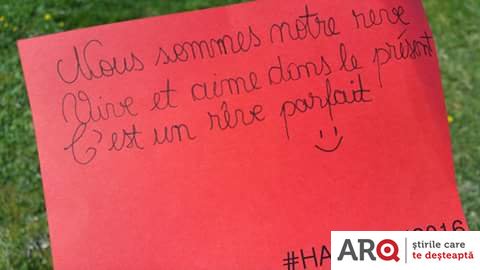 Nous sommes notre reve
Vive et aime dans le présent
C'est un rêve parfait
:)
#HA
2016
ARQ știrile care
te deșteaptă